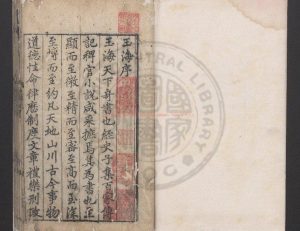 玉海序
玉海天下奇書也經史子集百家傳
記稗官小説咸采摭焉集為書也至
顯而至微至精而至宻至高而至深
至博而至約凡天地山川古今事物
道德性命律曆制度文章禮樂刑政
CENTRAL LIBRARY